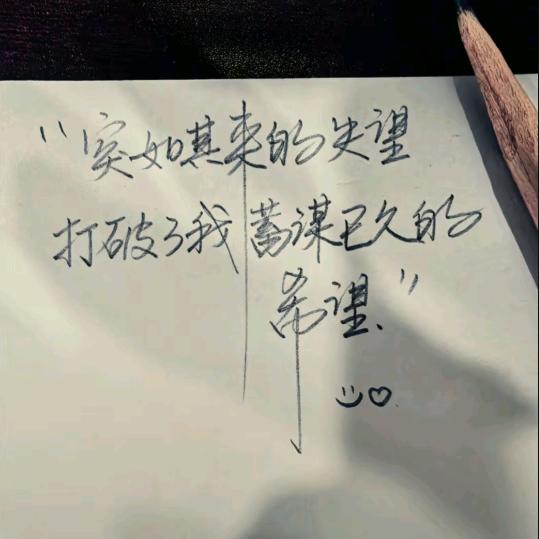 “突如其来的失望
打破了我蓄谋已久的
希望、”